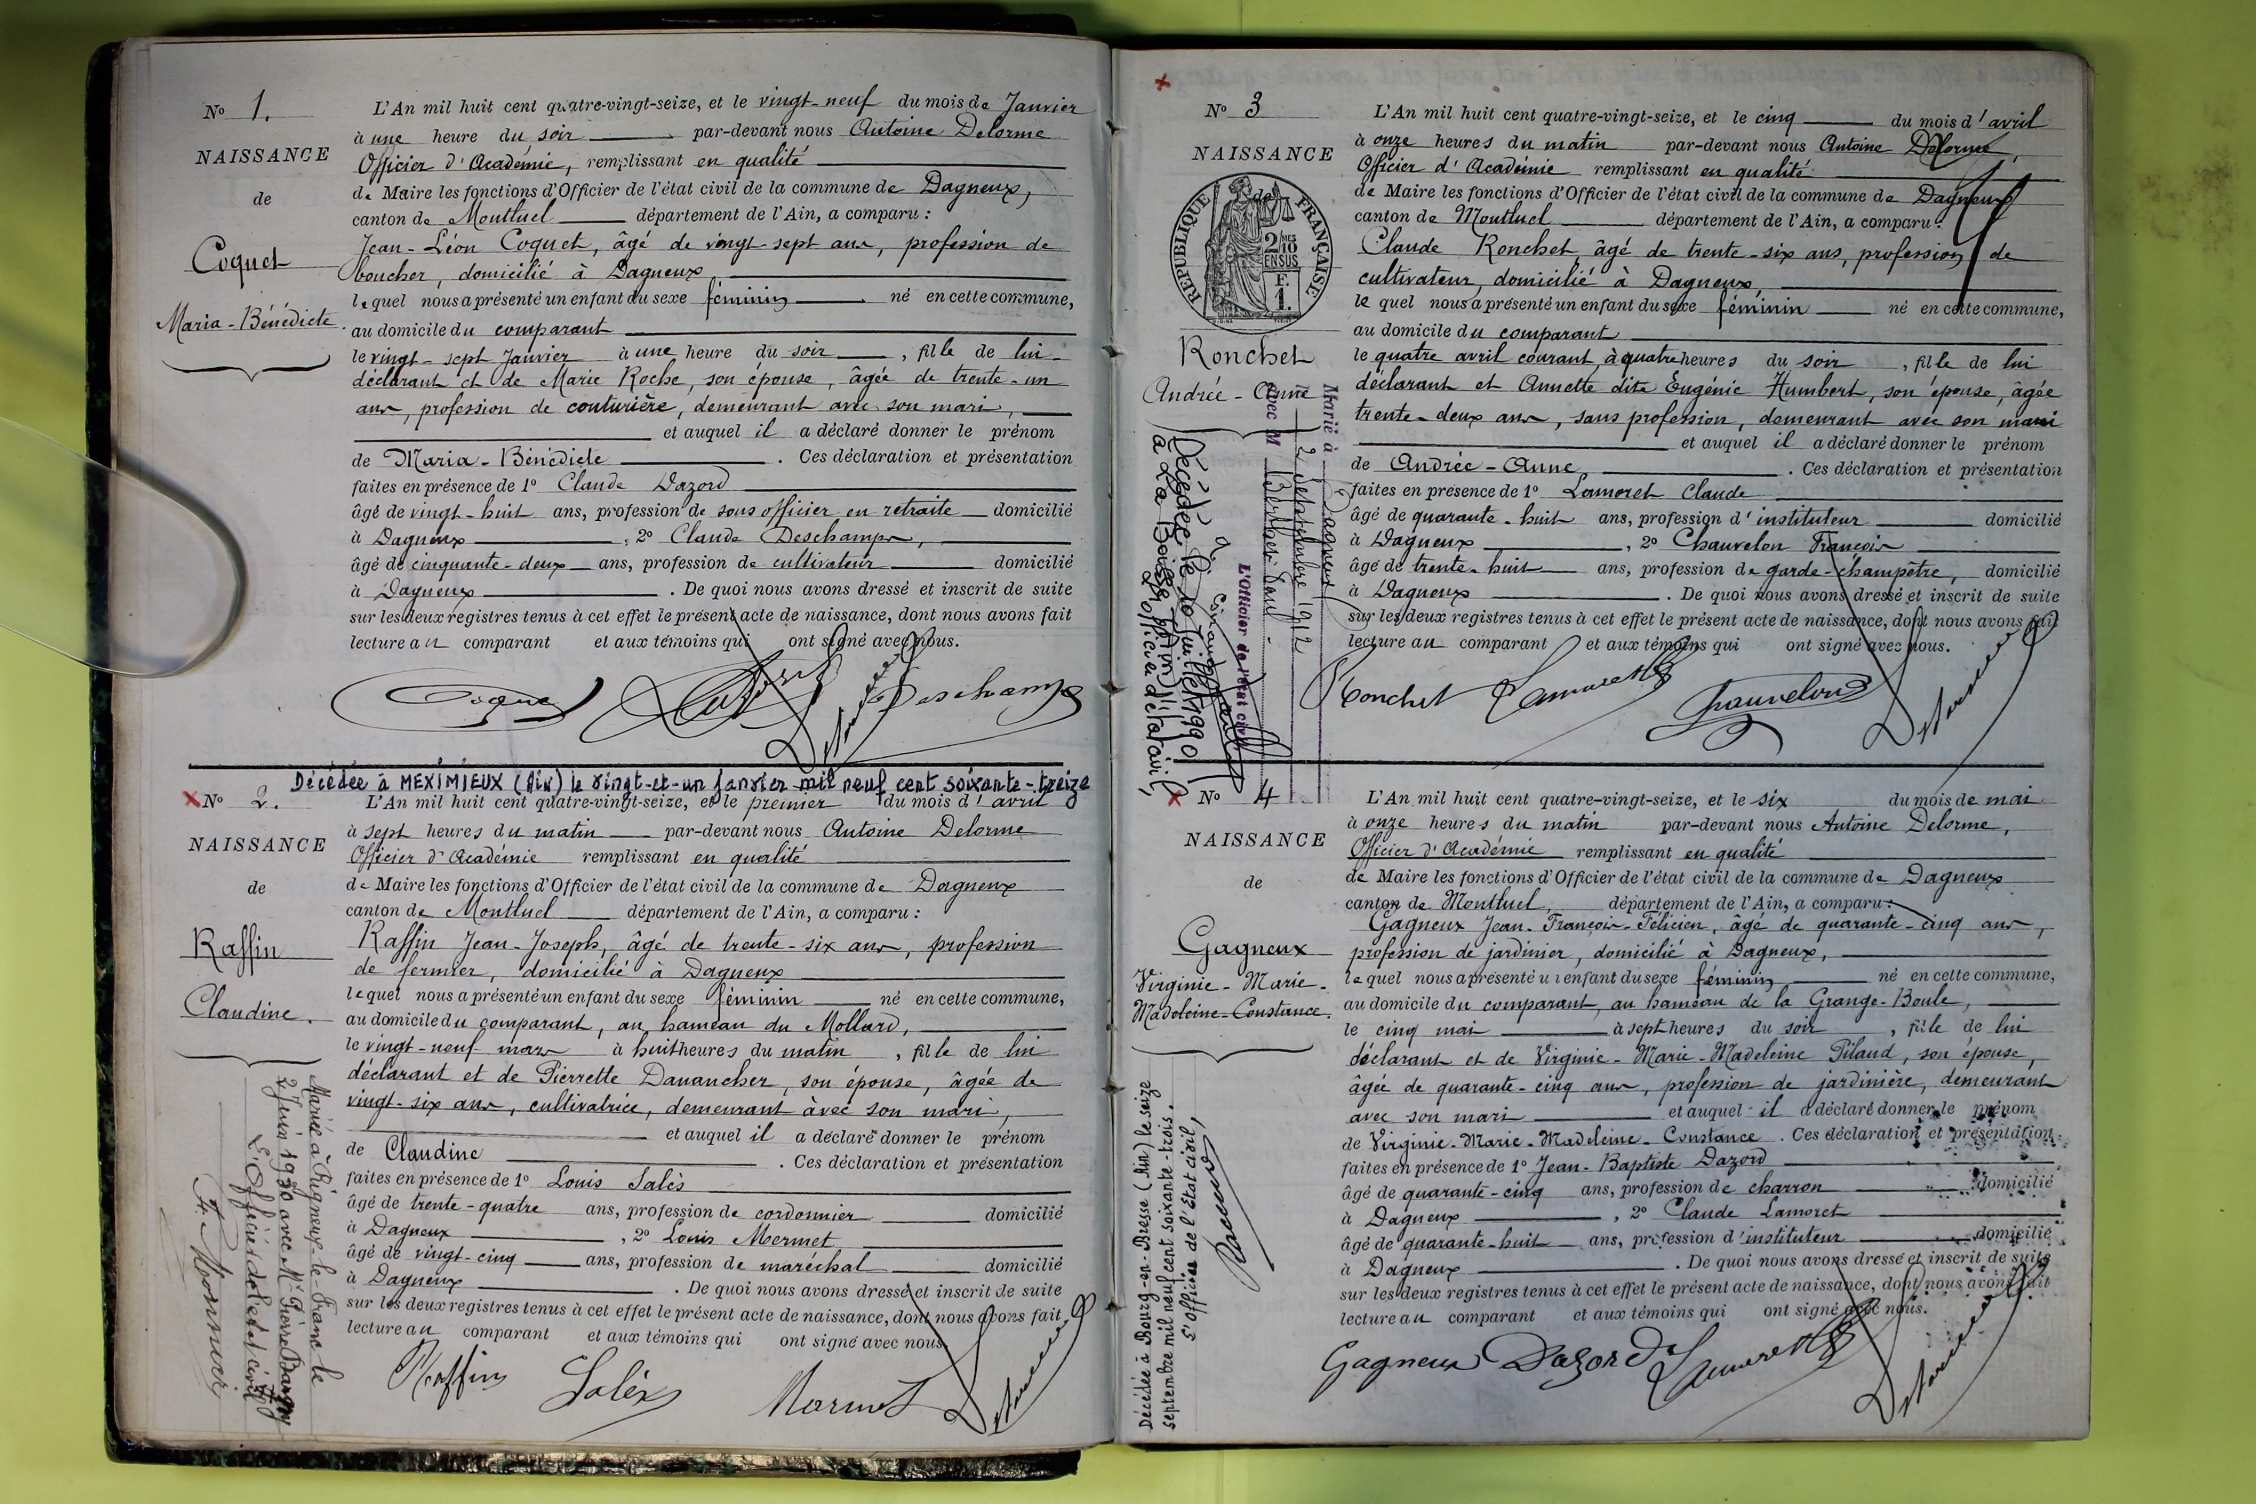 N° 1.
NAISSANCE
de
Coquet
Maria-Bénédicte.
L'An mil huit cent quatre-vingt-seize, et le vingt-neuf du mois de Janvier
à une heure du soir par-devant nous Antoine Delorme
Officier d'Académie, remplissant en qualité
de Maire les fonctions d'Officier de l'état civil de la commune de Dagneux,
canton de Montluel département de l'Ain, a comparu :
Jean-Léon Coquet, âgé de vingt-sept ans, profession de
boucher, domicilié à Dagneux,
lequel nous a présenté un enfant du sexe féminin né en cette commune,
au domicile du comparant
le vingt-sept Janvier à une heure du soir, fille de lui
déclarant et de Marie Roche, son épouse, âgée de trente-un
ans, profession de couturière, demeurant avec son mari,
et auquel il a déclaré donner le prénom
de Maria-Bénédicte. Ces déclaration et présentation
faites en présence de 1° Claude Dazord
âgé de vingt-huit ans, profession de sous officier en retraite domicilié
à Dagneux, 2° Claude Deschamps,
âgé de cinquante-deux ans, profession de cultivateur domicilié
à Dagneux. De quoi nous avons dressé et inscrit de suite
sur les deux registres tenus à cet effet le présent acte de naissance, dont nous avons fait
lecture au comparant et aux témoins qui ont signé avec nous.
Coquet Dazord Delorme Deschamps
Décédée à MEXIMIEUX (Ain) le vingt-et-un janvier mil neuf cent soixante-treize
N° 2.
NAISSANCE
de
Raffin
Claudine.
Mariée à Rigneux-le-Franc le
2 Juin 1930 avec Mr Pierre
L'Officier de l'état civil
L'An mil huit cent quatre-vingt-seize, et le premier du mois d'avril
à sept heures du matin par-devant nous Antoine Delorme
Officier d'Académie remplissant en qualité
de Maire les fonctions d'Officier de l'état civil de la commune de Dagneux
canton de Montluel département de l'Ain, a comparu :
Raffin Jean-Joseph, âgé de trente-six ans, profession
de fermier, domicilié à Dagneux
lequel nous a présenté un enfant du sexe féminin né en cette commune,
au domicile du comparant, au hameau du Mollard,
le vingt-neuf mars à huit heures du matin, fille de lui
déclarant et de Pierrette Davancher, son épouse, âgée de
vingt-six ans, cultivatrice, demeurant avec son mari,
et auquel il a déclaré donner le prénom
de Claudine. Ces déclaration et présentation
faites en présence de 1° Louis Salès
âgé de trente-quatre ans, profession de cordonnier domicilié
à Dagneux, 2° Louis Mermet,
âgé de vingt-cinq ans, profession de maréchal domicilié
à Dagneux. De quoi nous avons dressé et inscrit de suite
sur les deux registres tenus à cet effet le présent acte de naissance, dont nous avons fait
lecture au comparant et aux témoins qui ont signé avec nous.
Raffin Salès Mermet Delorme
N° 3
NAISSANCE
de
REPUBLIQUE FRANÇAISE
2/10 MES
EN SUS
1 F.
Ronchet
Andrée-Anne
Marié à Dagneux
le 2 septembre 1912
avec M
L'Officier de l'état civil
Décédée le 10 juillet 1990
à La Boisse (Ain)
L'officier d'état civil,
L'An mil huit cent quatre-vingt-seize, et le cinq du mois d'avril
à onze heures du matin par-devant nous Antoine Delorme,
Officier d'Académie remplissant en qualité
de Maire les fonctions d'Officier de l'état civil de la commune de Dagneux
canton de Montluel département de l'Ain, a comparu :
Claude Ronchet, âgé de trente-six ans, profession de
cultivateur, domicilié à Dagneux,
lequel nous a présenté un enfant du sexe féminin né en cette commune,
au domicile du comparant
le quatre avril courant, à quatre heures du soir, fille de lui
déclarant et Annette dite Eugénie Humbert, son épouse, âgée
trente-deux ans, sans profession, demeurant avec son mari
et auquel il a déclaré donner le prénom
de Andrée-Anne. Ces déclaration et présentation
faites en présence de 1° Lamoret Claude
âgé de quarante-huit ans, profession d'instituteur domicilié
à Dagneux, 2° Chauvelon François
âgé de trente-huit ans, profession de garde-champêtre, domicilié
à Dagneux. De quoi nous avons dressé et inscrit de suite
sur les deux registres tenus à cet effet le présent acte de naissance, dont nous avons fait
lecture au comparant et aux témoins qui ont signé avec nous.
Ronchet Lamoret Chauvelon Delorme
N° 4
NAISSANCE
de
Gagneux
Virginie-Marie-
Madeleine-Constance.
Décédée à Bourg-en-Bresse (Ain) le seize
septembre mil neuf cent soixante-trois.
L'officier de l'Etat civil,
L'An mil huit cent quatre-vingt-seize, et le six du mois de mai
à onze heures du matin par-devant nous Antoine Delorme,
Officier d'Académie remplissant en qualité
de Maire les fonctions d'Officier de l'état civil de la commune de Dagneux
canton de Montluel, département de l'Ain, a comparu :
Gagneux Jean-François-Félicien, âgé de quarante-cinq ans,
profession de jardinier, domicilié à Dagneux,
lequel nous a présenté un enfant du sexe féminin né en cette commune,
au domicile du comparant, au hameau de la Grange-Boule,
le cinq mai à sept heures du soir, fille de lui
déclarant et de Virginie-Marie-Madeleine Pilaud, son épouse,
âgée de quarante-cinq ans, profession de jardinière, demeurant
avec son mari et auquel il a déclaré donner le prénom
de Virginie-Marie-Madeleine-Constance. Ces déclaration et présentation
faites en présence de 1° Jean-Baptiste Dazord
âgé de quarante-cinq ans, profession de charron domicilié
à Dagneux, 2° Claude Lamoret
âgé de quarante-huit ans, profession d'instituteur domicilié
à Dagneux. De quoi nous avons dressé et inscrit de suite
sur les deux registres tenus à cet effet le présent acte de naissance, dont nous avons fait
lecture au comparant et aux témoins qui ont signé avec nous.
Gagneux Dazord Lamoret Delorme